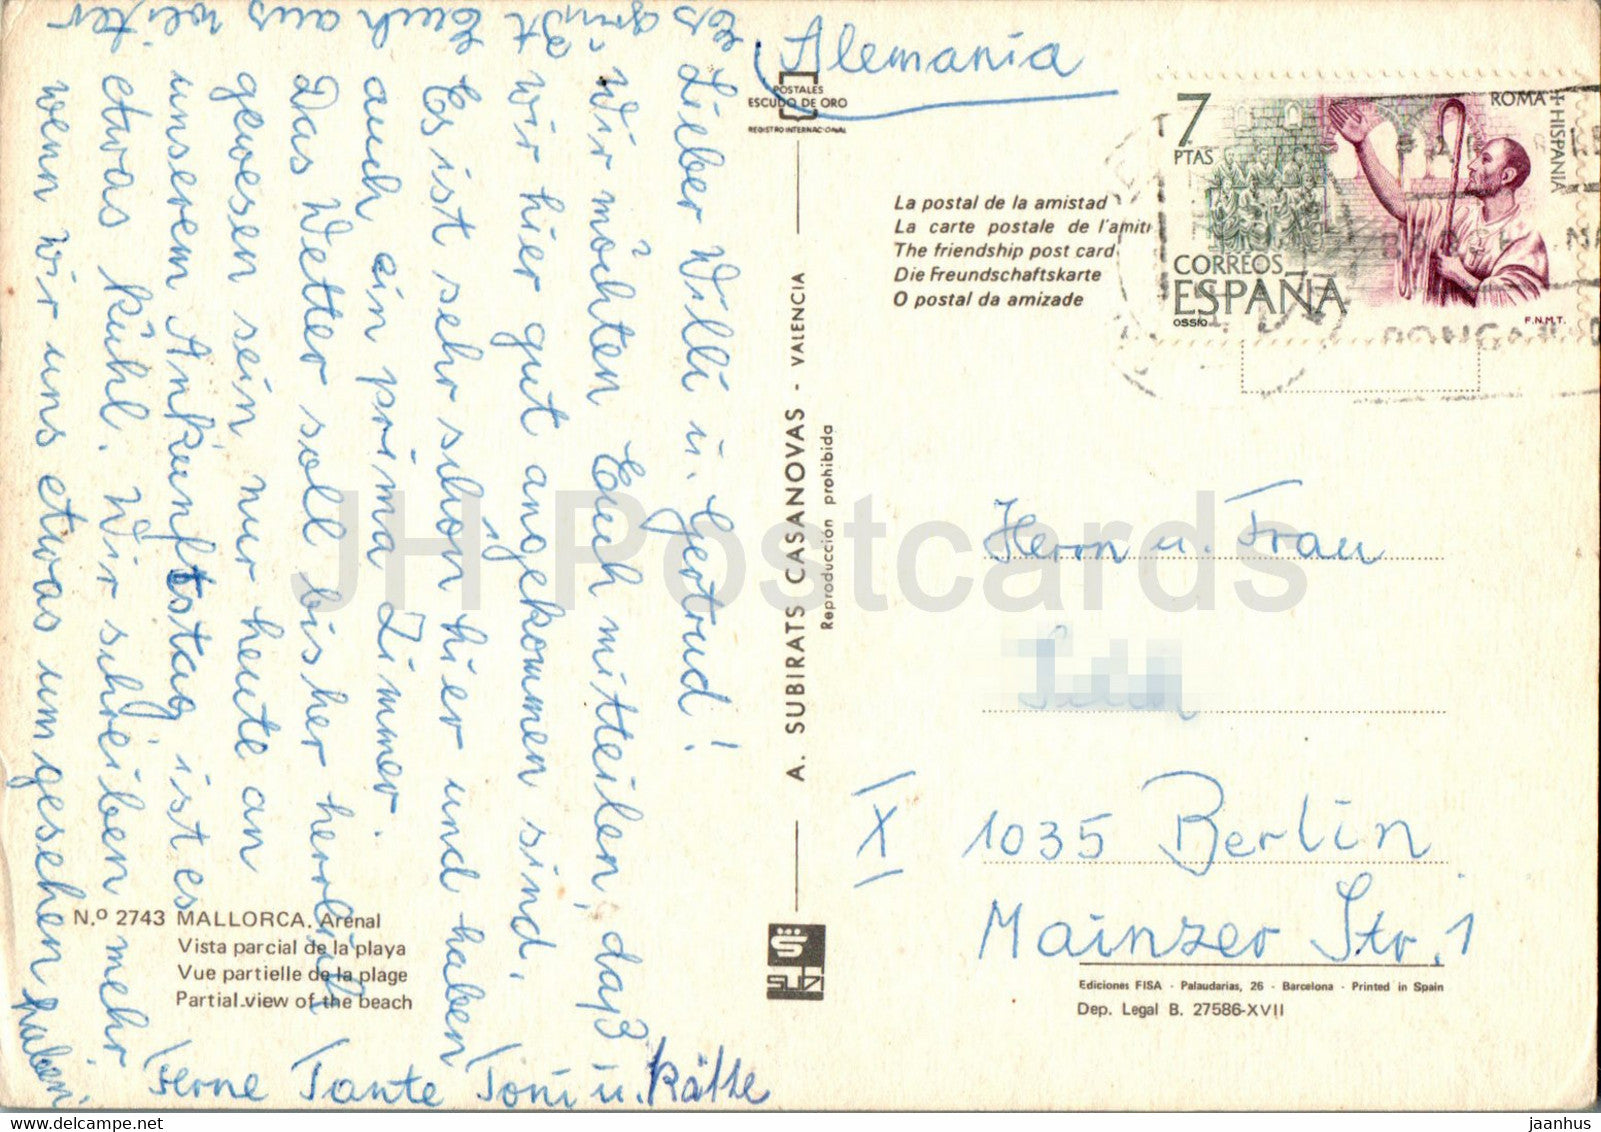 Lieber Willi u. Gertrud!
Wir möchten Euch mitteilen, daß
wir hier gut angekommen sind.
Es ist sehr schön hier und haben
auch ein prima Zimmer.
Das Wetter soll bisher herrlich
gewesen sein nur heute an
unserem Ankunftstag ist es
etwas kühl. Wir schreiben mehr
wenn wir uns etwas umgesehen haben.
Es grüßt Euch aus weiter
Ferne Tante Toni u. Käthe
Alemania
POSTALES
ESCUDO DE ORO
REGISTRO INTERNACIONAL
La postal de la amistad
La carte postale de l'amiti
The friendship post card
Die Freundschaftskarte
O postal da amizade
7
PTAS
ROMA + HISPANIA
CORREOS
ESPAÑA
OSSIO
F.N.M.T.
A. SUBIRATS CASANOVAS - VALENCIA
Reproducción prohibida
SUBI
Herrn u. Frau
X 1035 Berlin
Mainzer Str. 1
Ediciones FISA - Palaudarias, 26 - Barcelona - Printed in Spain
Dep. Legal B. 27586-XVII
N.º 2743 MALLORCA. Arenal
Vista parcial de la playa
Vue partielle de la plage
Partial view of the beach
JH Postcards
www.delcampe.net
jaanhus